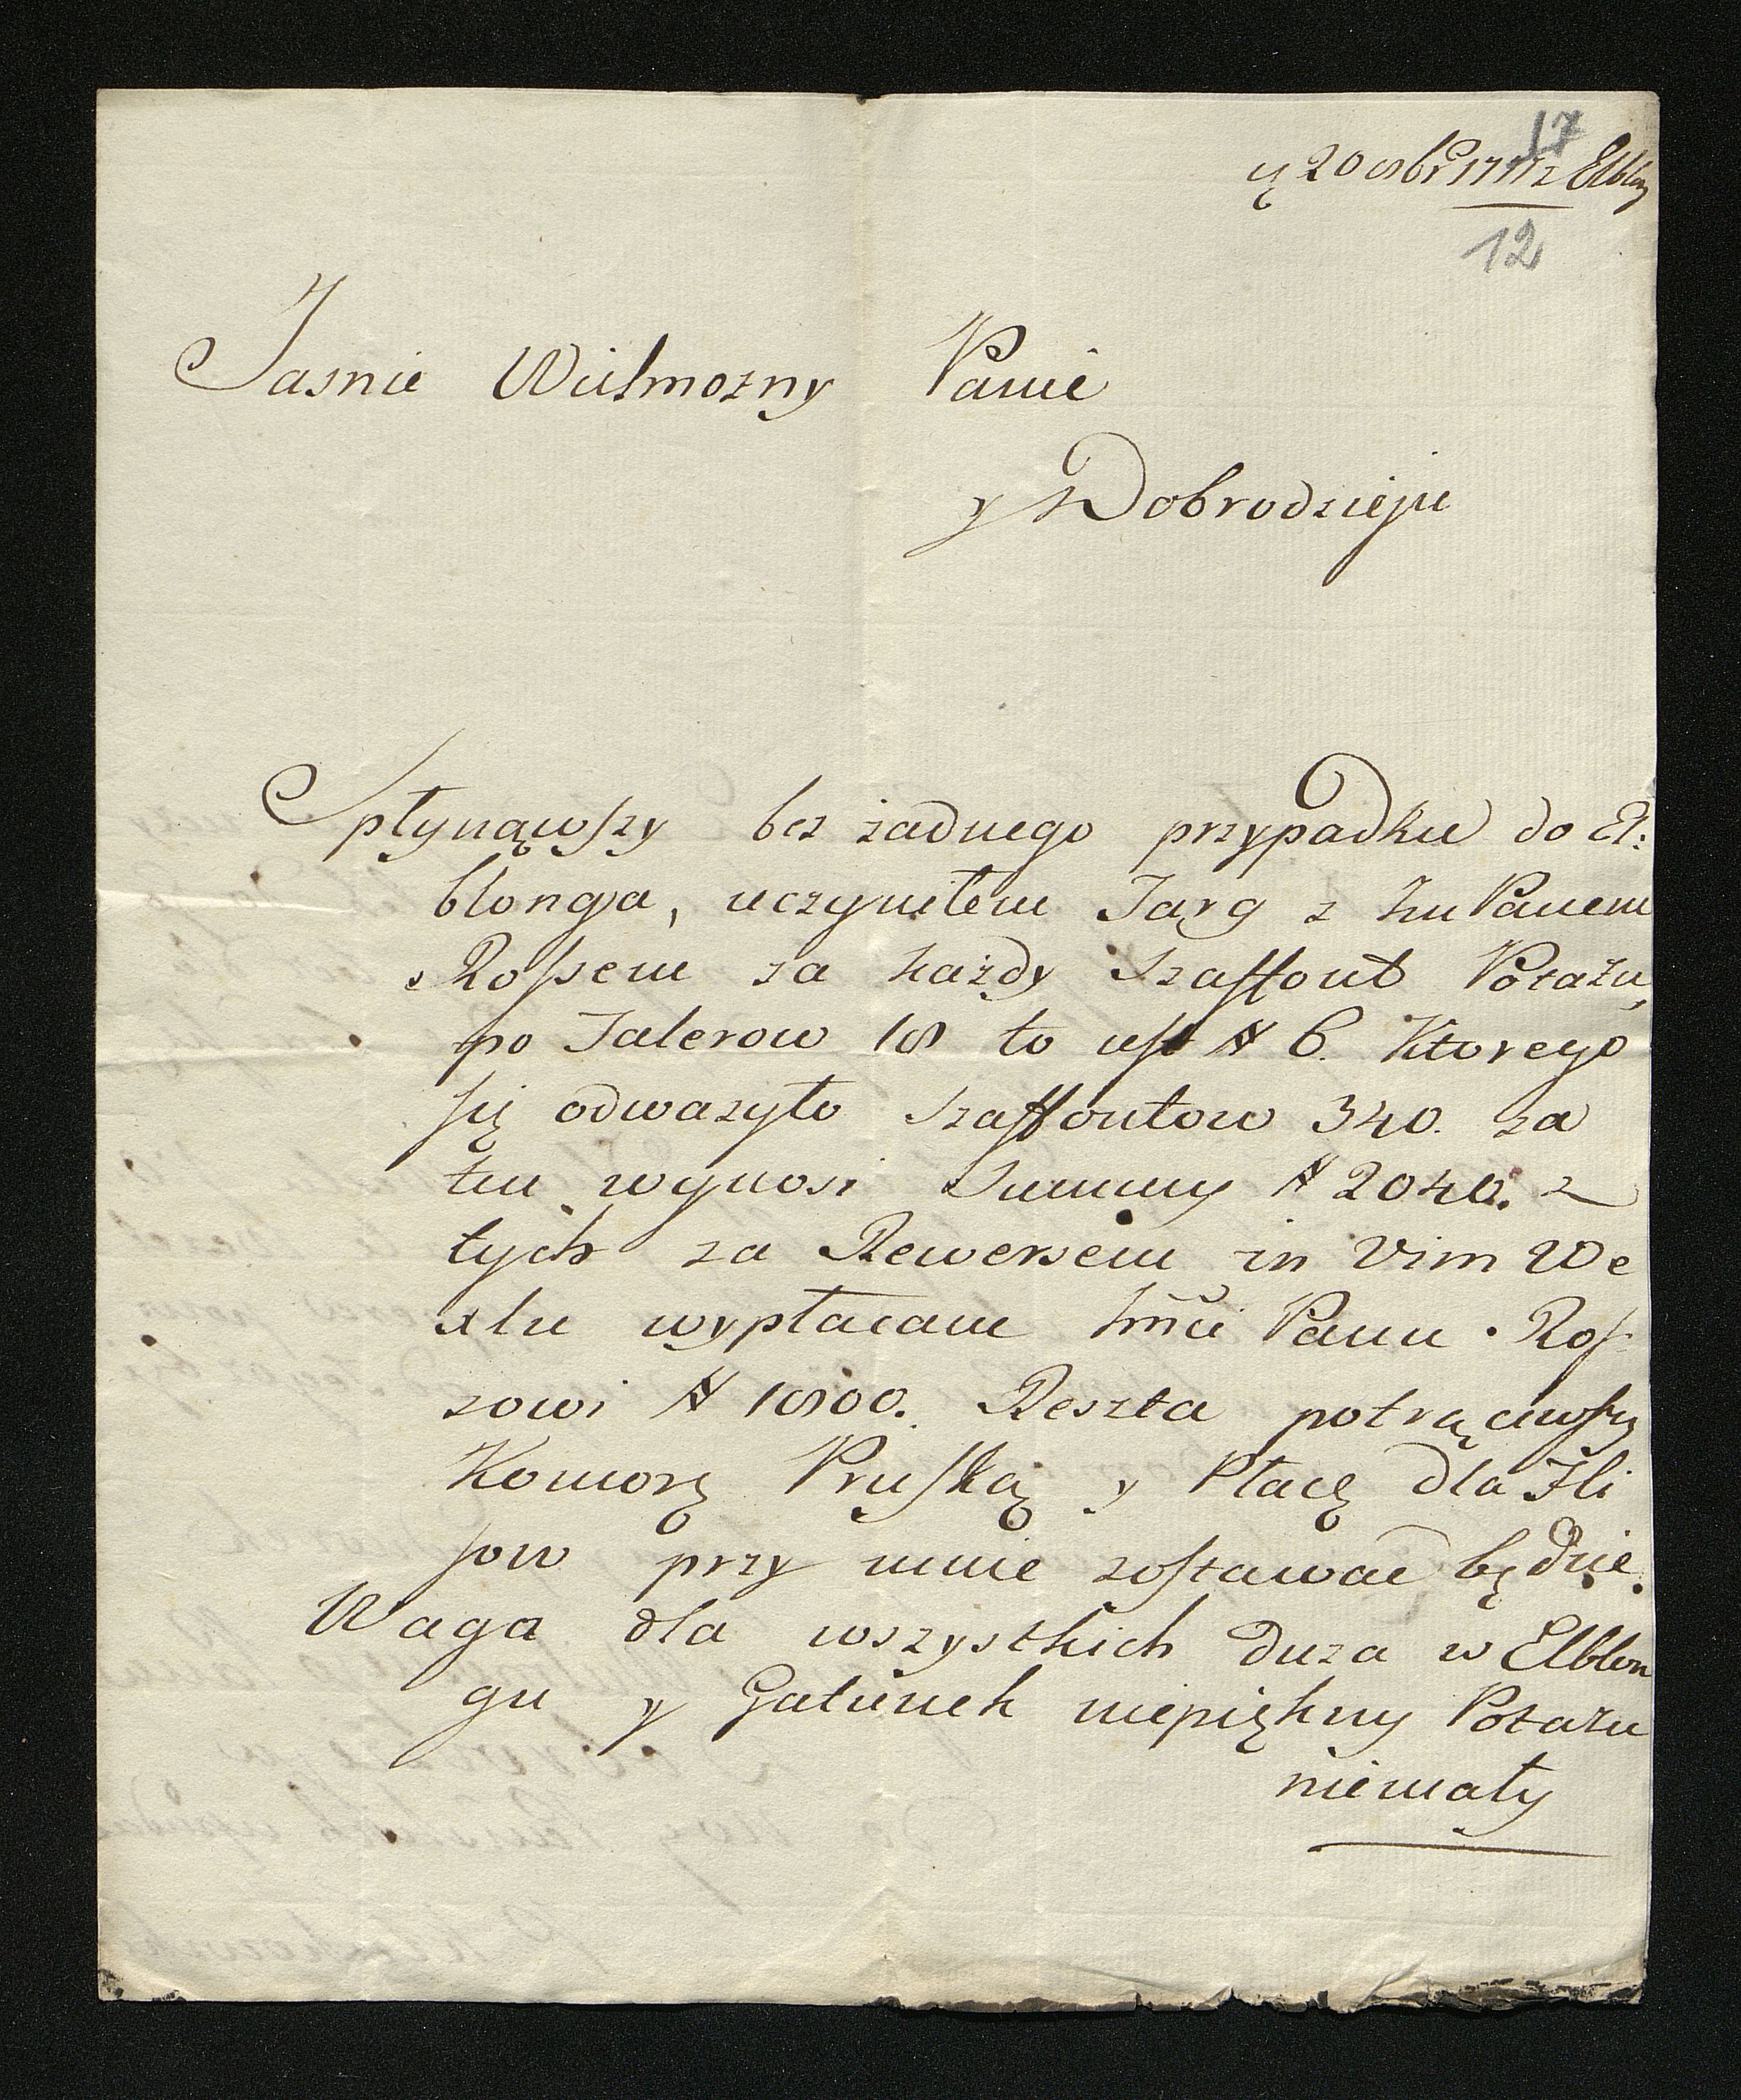 17
20 8br 17 z Elbląg
12
Jasnie Wielmozny Panie
y Dobrodzieju
Spłynąwszy bez żadnego przypadku do El:
blonga, uczyniłem Targ z Jm Panem
Rossem za każdy Szaffont Potażu,
po Talerow 18 to iest # 6. Ktorego
się odważyło Szaffontow 340. za
tem wynosi Summy # 2040. z
tych za Rewersem in Vim We
xlu wypłacam Jmći Panu Ros
sowi # 1800. Reszta potrąciwszy
Komorę Pruską y Płacę dla Fli
sow przy mnie zostawać będzie.
Waga dla wszystkich duza w Elblon
gu y Gatunek niepiękny Potażu
niemały